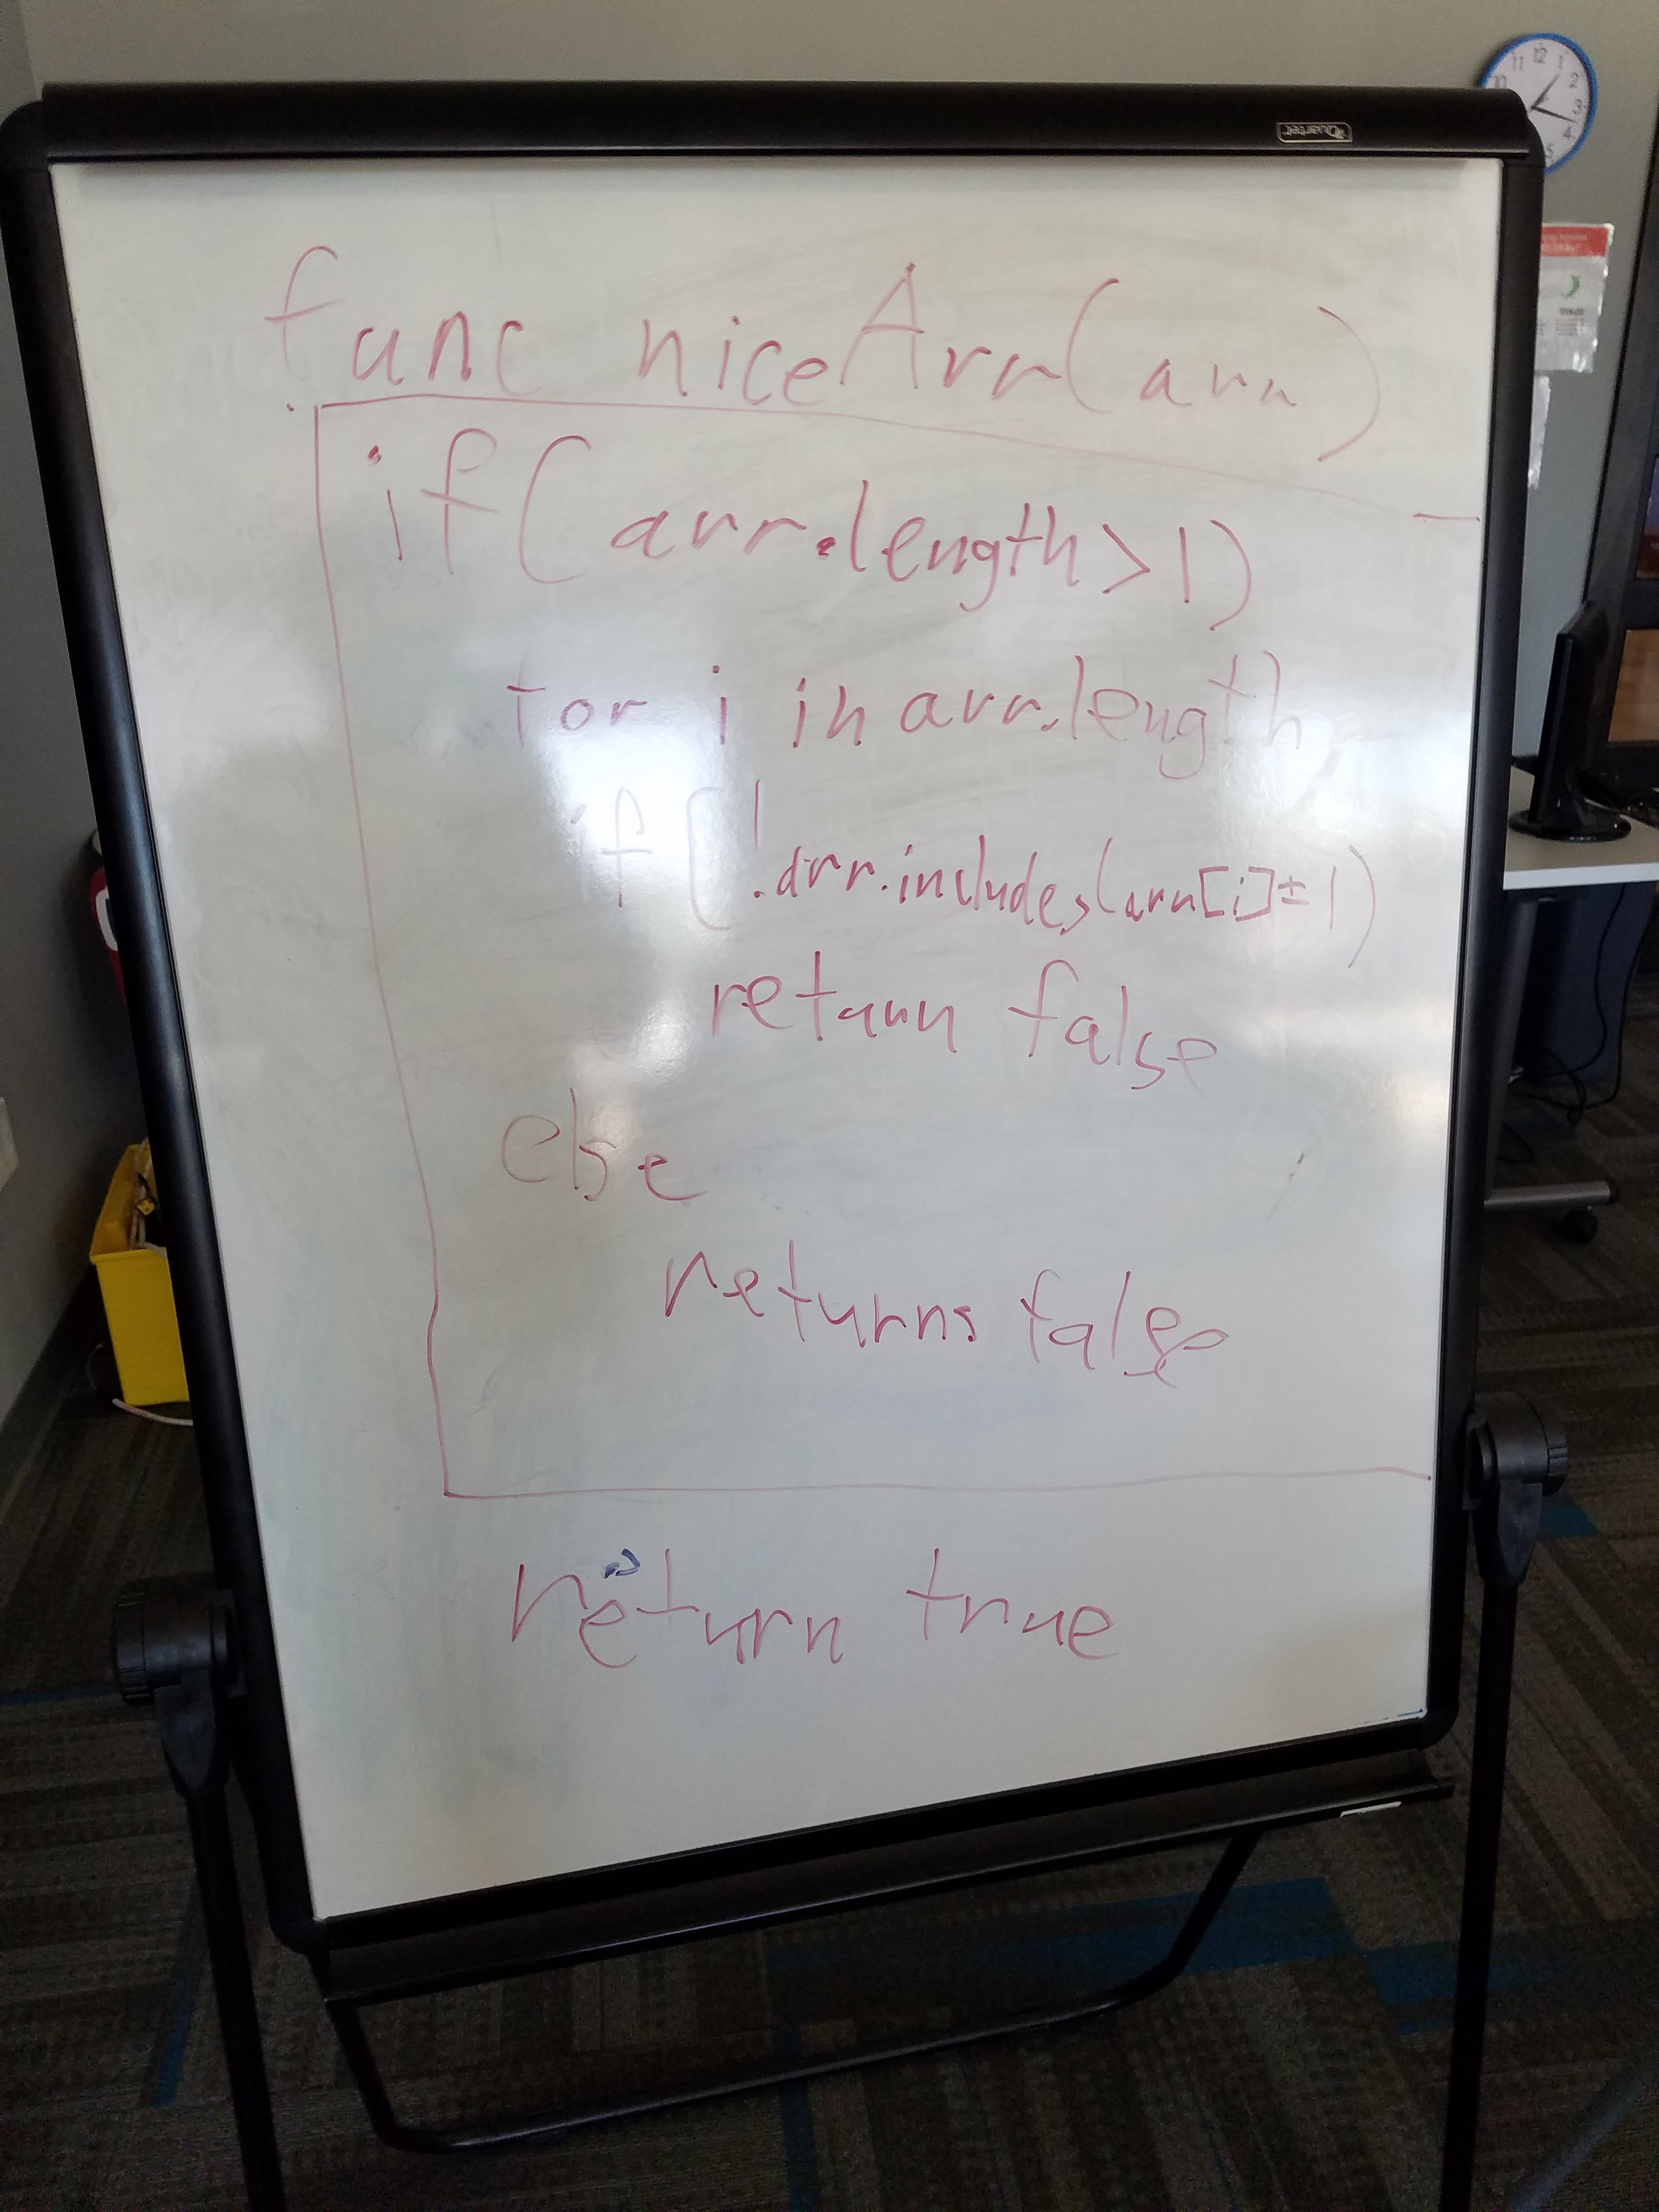 Quartet
12
11
1
10
2
3
4
5
func niceArr(arr)
if(arr.length>1)
for i in arr.length
if(!arr.includes(arr[i]±1)
return false
else
returns false
return true